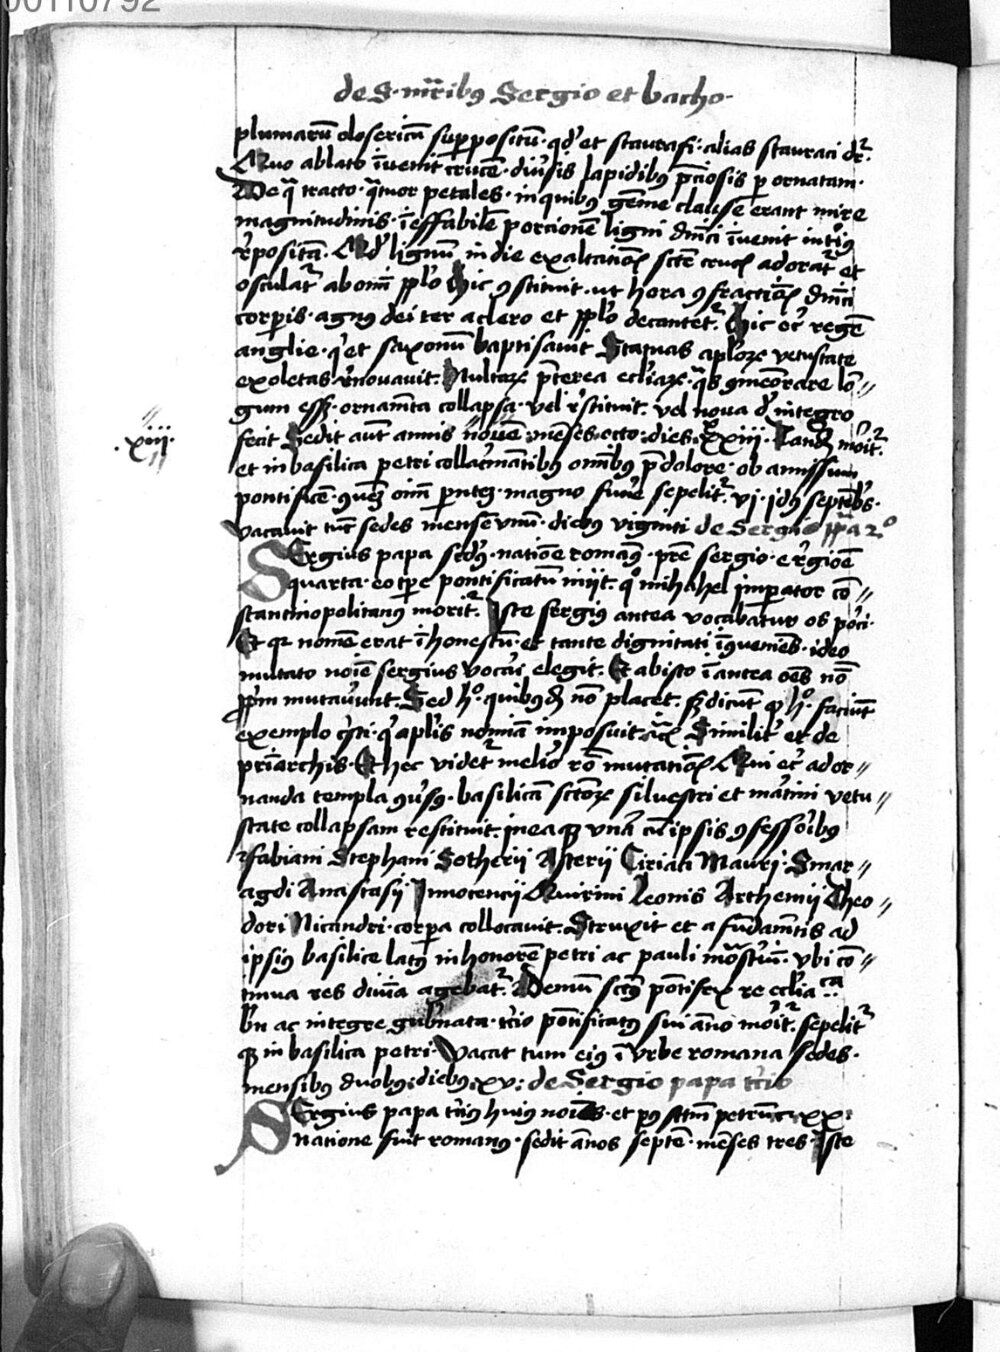 00110792
de S. mr̄ibꝰ Sergio et bacho.
plumarū olosericū suppositū. qd̛ et staurasi. alias stauraci dr̄.
Quo ablato īvenit crucē. diưsis lapidibꝰ p̄ciosis p ornatam.
De qͣ tracto. qͣtuor petales. in quibꝰ gēme clause erant mire
magnitudinis. īeffabilē porcionē ligni dn̄ici īvenit intiꝰ
r̛positā. Qd̛ lignū in die exaltatiōꝭ scte̅ crucꝭ adorat᷑ et
osculat᷑ ab omī pp̄lo Hic ꝯstituit. ut hora ꝯfractiōꝭ dn̄ici
corpis. agnꝰ dei ter a clero et pp̄lo decantet᷑. Hic ec̛ regē
anglie. q̛ et saxonū baptisavit Statuas apl̄oꝝ vetustate
exoletas. r̛novavit. Multaꝝ p̄terea eccl̛iaꝝ. qͣs ꝯmēorare lō⸗
gum esꝫ. ornam̄ta collapsa. vel r̛stituit. vel nova d̛ integro
fecit Sedit aūt annis novē. mēses. octo: dies. xxiij. Tandē moīt᷑.
.xiij.
et in basilica petri collac̛mātibꝰ om̄ibꝰ p̄ dolore. ob amissum
pontificē. quēꝫ om̄ pntꝫ. magno funē sepelit᷑. vj. idꝰ septēbꝭ.
vacavit tūc sedes mensē vnū. diebꝰ viginti de Sergio pp̄a 2º
Sergius papa scd̛ꝰ. natiōe romanꝰ. pr̄e sergio. e r̛gioē
quarta. eo tp̄e pontificatū iniit. qº mihahel imperator cō⸗
stantinopolitanꝰ morit᷑. Iste sergius antea vocabatur os porci.
Et qꝛ nomē erat īhonestū. et tante dignitati īꝯueniēs. ideo
mutato noīe sergius vocari elegit. Et ab isto īantea oēs nō
pp̄m mutavūnt. Sed hº. quibusdā nō placet. sꝫ dicūt ꝙ hº. faciūt
exemplo xp̄i. q̛ apl̄is nomina imposuit. Similit̛ et de
pr̄iarchis. Et hec videt᷑ melior rō mutatiōꝭ Qui ec̛ ador⸗
nanda templa ꝯưsꝰ. basilicā sctōꝝ silvestri et martini vetu⸗
state collapsam restituit. in ea qꝫ vna cū ipsis ꝯfessoribꝰ
fabiani Stephani Sotherii Asterii Ciriaci Mauri. Smar⸗
agdi Anastasij Innocencij Quirini Leonis Arthemij Theo⸗
dori Nicandri. corpa collocavit. Struxit et a fūdam̄tis ad
ipsiꝰ basilice latꝰ in honorē petri ac pauli mōast̛iū. vbi cō⸗
tinua res divīa agebat᷑. Demū sctꝰ pōtifex re eccl̛iaᶜᵃ
bn̄ ac integre gubernata. t̛cio pōtificatꝰ sui āno moīt᷑. sepelit᷑
qꝫ in basilica petri. Vacat tum eiꝰ ī vrbe romana sedes.
mensibꝰ duobꝰ: diebꝰ. xv: de Sergio papa t̛cio
Sergius papa t̛ciꝰ huiꝰ noīs. et pꝰ sctm̄ petrū cxx:
natione fuit romanꝰ. sedit ānos septē. mēses tres Iste